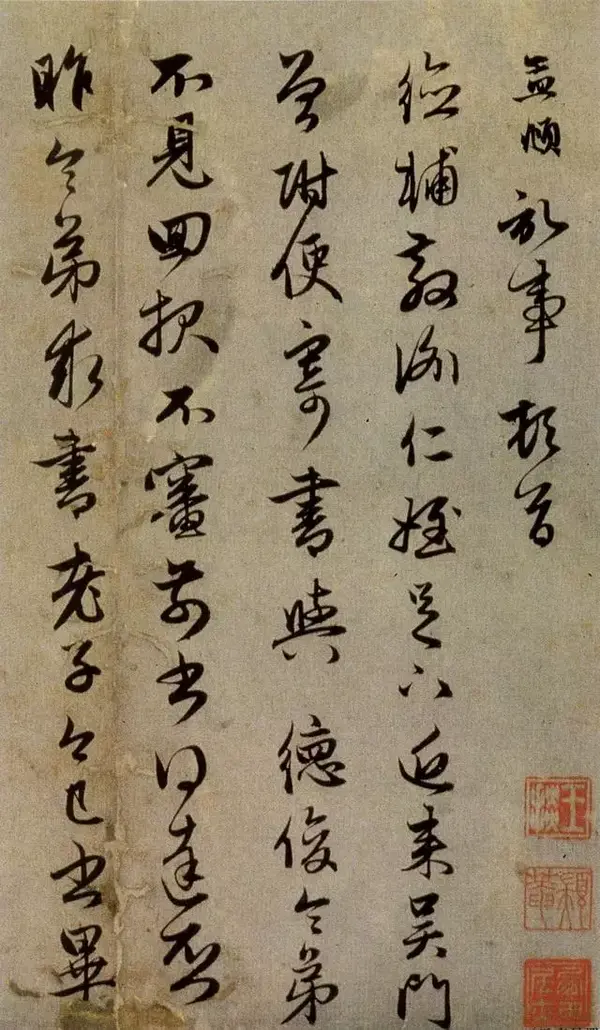 孟頫記事頓首
德輔教諭仁姪足下近来吳門
曾附便寄書與德俊令弟
不見回報不審前書得達否
昨令弟求書老子今已書畢